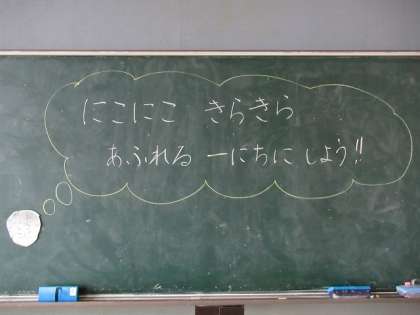 にこにこ きらきら
あふれる 一にちに しよう!!